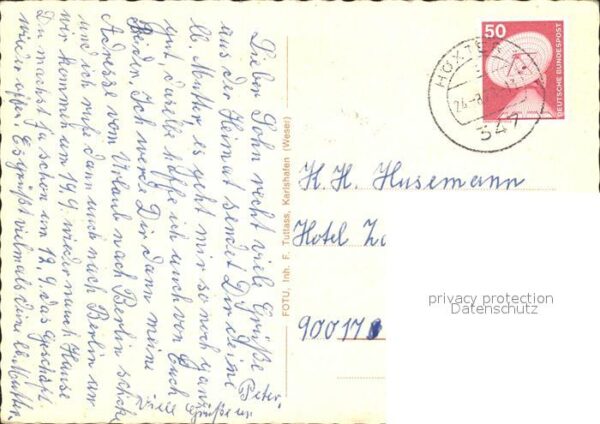 Lieber Sohn recht viele Grüße
aus der Heimat sendet Dir deine
lb. Mutter, es geht mir so noch ganz
gut, dasselbe hoffe ich auch von Euch
Beiden. Ich werde Dir dann meine
Adresse vom Urlaub nach Berlin schicken
und ich rufe dann auch nach Berlin an
wir kommen am 19.9. wieder nach Hause
Du machst ja schon am 12.9. das Geschäft
wieder offen. Es grüßt vielmals deine lb. Mutter.
Viele Grüße
Peter.
FOTU, Inh. F. Tuttass, Karlshafen (Weser)
50
DEUTSCHE BUNDESPOST
HÖXTER
347
H. H. Husemann
Hotel
privacy protection
Datenschutz